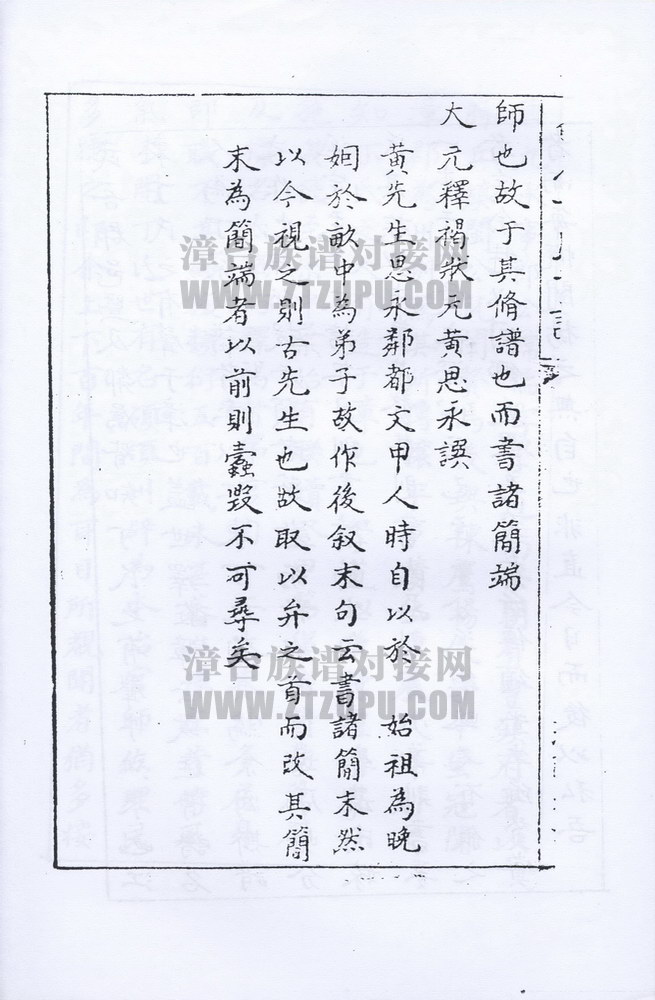 師也故于其脩譜也而書諸簡端
大元釋褐狀元黃思永譔
黃先生思永鄰都文甲人時自以於 始祖為晚
姻於畝中為弟子故作後叙末句云書諸簡末然
以今視之則古先生也故取以弁之首而改其簡
末為簡端者以前則蠧毀不可尋矣
漳台族谱对接网
WWW.ZTZUPU.COM
漳台族谱对接网
WWW.ZTZUPU.COM